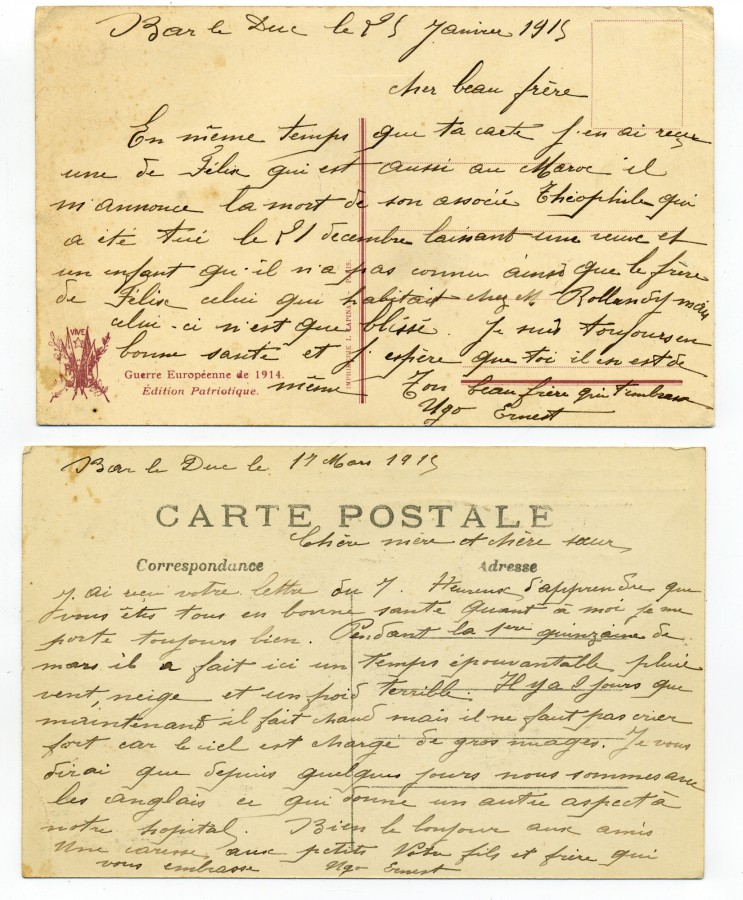 Bar le Duc le 25 Janvier 1915
cher beau frère
En même temps que ta carte j'en ai reçu
une de Félix qui est aussi au Maroc il
m'annonce la mort de son associé Théophile qui
a été tué le 21 decembre laissant une veuve et
un enfant qu'il n'a pas connu ainsi que le frère
de Félix celui qui habitait chez M. Rolland mais
celui-ci n'est que blissé. Je suis toujours en
bonne santé et j'espère que toi il en est de
même Ton beau frère qui t'embrasse
Ugo Ernest
VIVE
Guerre Européenne de 1914.
Édition Patriotique.
IMPRIMERIE I. LAPINA. PARIS.
Bar le Duc le 17 Mars 1915
CARTE POSTALE
Chère mère et chère sœur
Correspondance Adresse
J'ai reçu votre lettre du 7. Heureux d'apprendre que
vous êtes tous en bonne santé quant à moi je me
porte toujours bien. Pendant la 1ere quinzaine de
mars il a fait ici un temps épouvantable pluie
vent, neige et un froid terrible. Il y a 2 jours que
maintenant il fait chaud mais il ne faut pas crier
fort car le ciel est chargé de gros nuages. Je vous
dirai que depuis quelques jours nous sommes avec
les anglais ce qui donne un autre aspect à
notre hopital. Bien le bonjour aux amis
Une caresse aux petits Votre fils et frère qui
vous embrasse Ugo Ernest